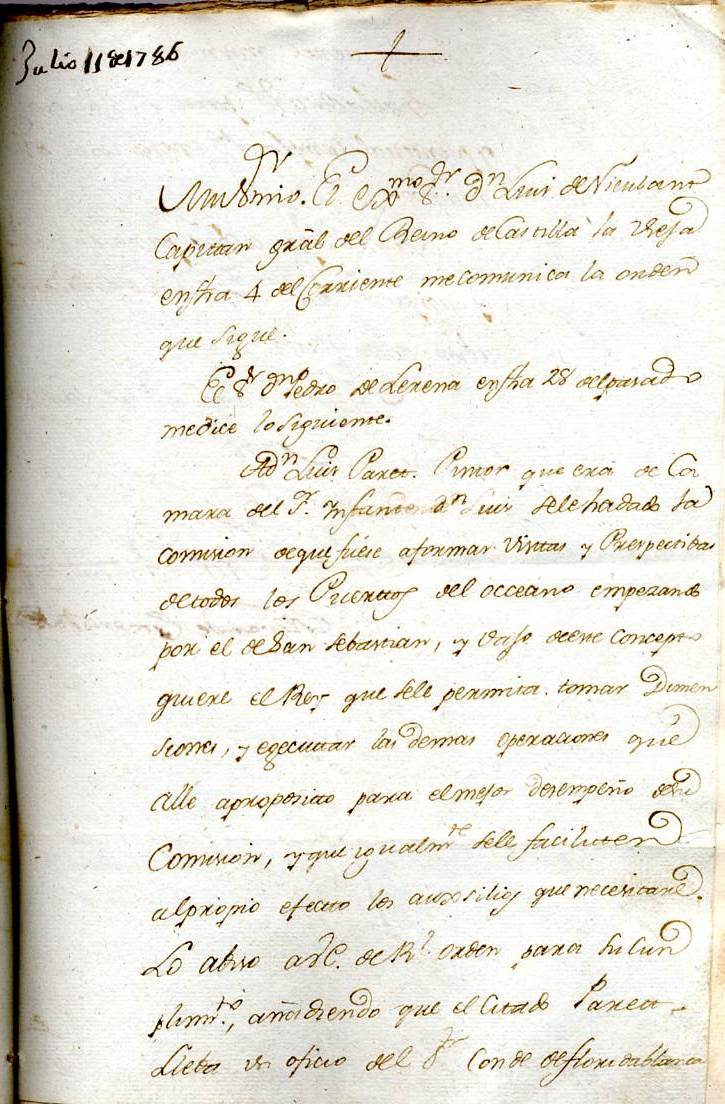 Julio 11 de 1786
Muy Sr. mio. El Exmo. Sr. Dn. Luis de Nieulant
Capitan Gràl del Reino de Castilla la Vieja
en fha 4 del Corriente me comunica la orden
que sigue.
El Sr. Dn. Pedro de Lerena en fha 28 del pasado
me dice lo siguiente.
A Dn. Luis Paret. Pintor que era de Ca
mara del Sr. Infante Dn. Luis se le ha dado la
comision de que fuese a formar Vistas y Prespectibas
de todos los Puertos del occeano empezando
por el de San Sebastian, y vajo de este Concepto
quiere el Rey que se le permita tomar Dimen
siones, y egecutar las demas operaciones que
alle aproposito para el mejor desempeño de su
Comision, y que igualmte. se le faciliten
al propio efecto los auxsilios que necesitare.
Lo abiso a V.E. de Rl. orden para su cun
plimto., añadiendo que el Citado Paret
Lleba un oficio del Sr. Conde de floridablanca